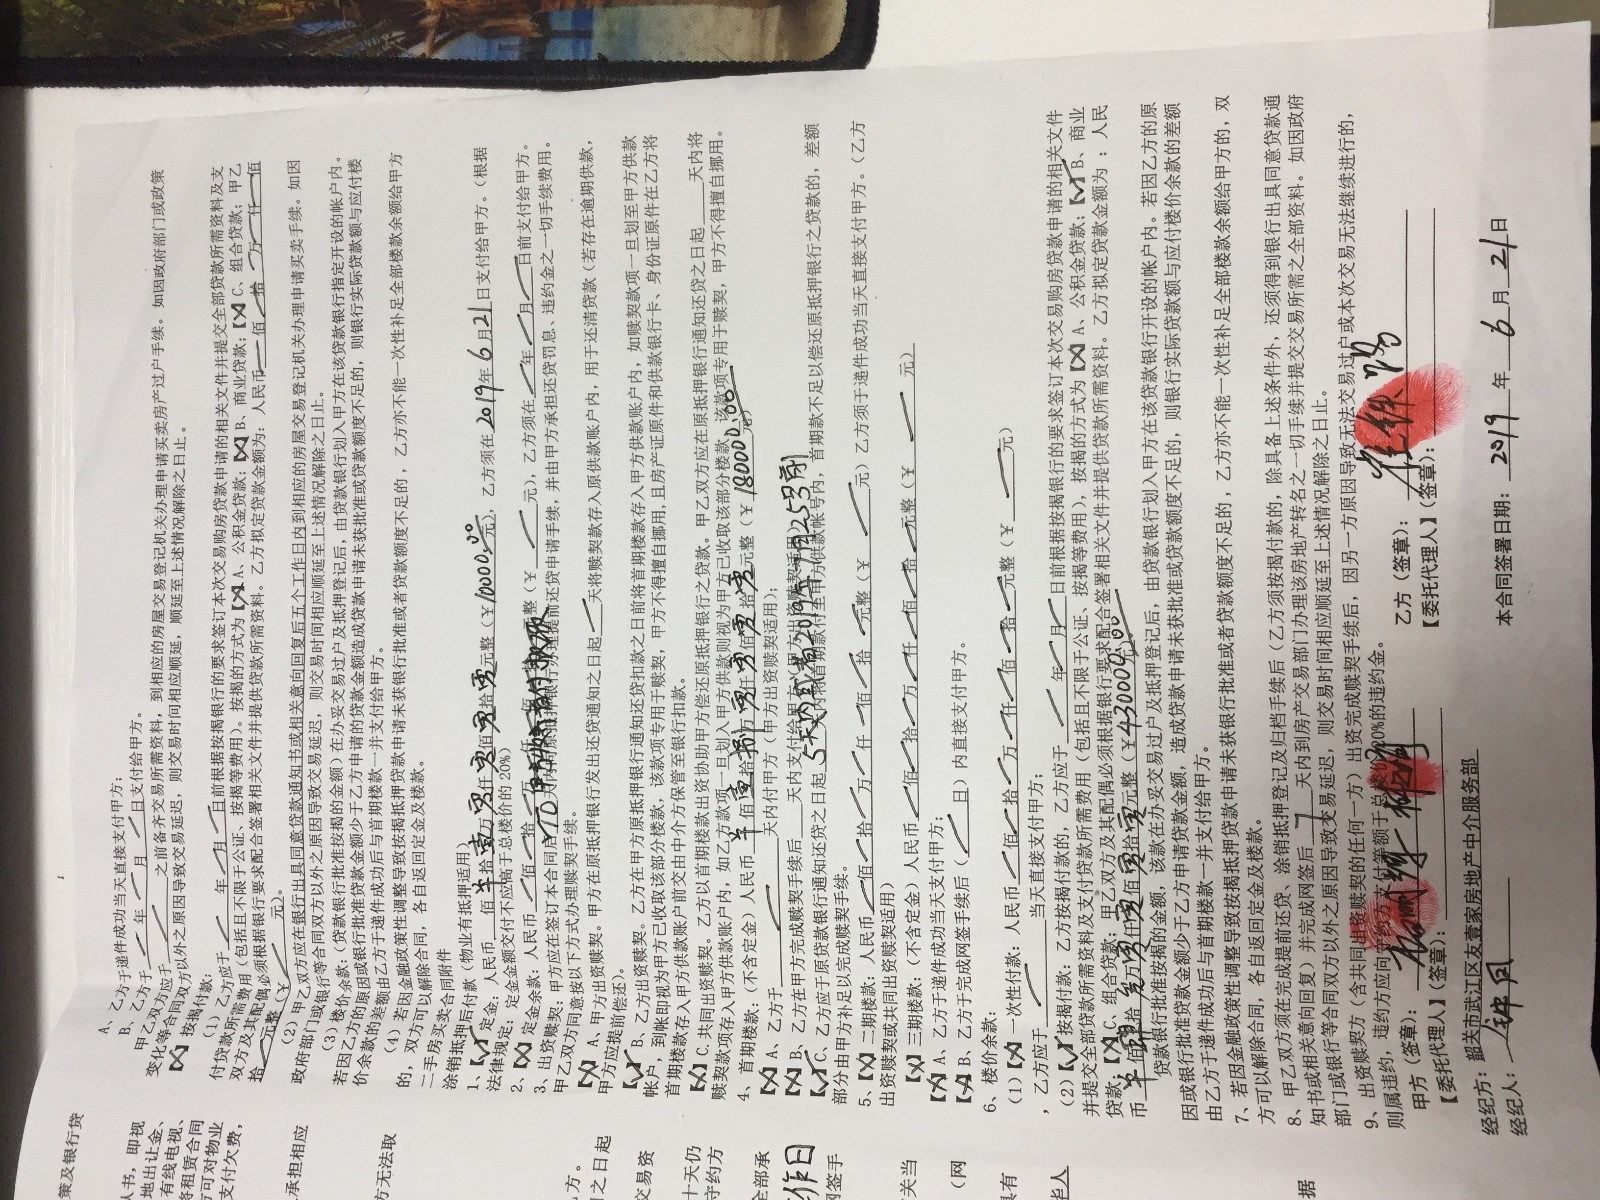 A、乙方于递件成功当天直接支付甲方；
B、乙方于 年 月 日支付给甲方。
甲乙双方应于 之前备齐交易所需资料，到相应的房屋交易登记机关办理申请买卖房产过户手续。如因政府部门或政策
变化等合同双方以外之原因导致交易延迟，则交易时间相应顺延，顺延至上述情况解除之日止。
【X】按揭付款：
（1）乙方应于 年 月 日前根据按揭银行的要求签订本次交易购房贷款申请的相关文件并提交全部贷款所需资料及支
付贷款所需费用（包括且不限于公证、按揭等费用）。按揭的方式为【X】A、公积金贷款；【X】B、商业贷款；【X】C、组合贷款；甲乙
双方及其配偶必须根据银行要求配合签署相关文件并提供贷款所需资料。乙方拟定贷款金额为：人民币 佰 拾 万 仟 佰
拾 元整（￥ 元）。
（2）甲乙双方应在银行出具同意贷款通知书或相关意向回复后五个工作日内到相应的房屋交易登记机关办理申请买卖手续。如因
政府部门或银行等合同双方以外之原因导致交易延迟，则交易时间相应顺延至上述情况解除之日止。
（3）楼价余款：（贷款银行批准按揭的金额）在办妥交易过户及抵押登记后，由贷款银行划入甲方在该贷款银行指定开设的帐户内。
若因乙方的原因或银行批准贷款金额少于乙方申请的贷款金额造成贷款申请未获批准或贷款额度不足的，则银行实际贷款额与应付楼
价余款的差额由乙方于递件成功后与首期楼款一并支付给甲方。
（4）若因金融政策性调整导致按揭抵押贷款申请未获银行批准或者贷款额度不足的，乙方亦不能一次性补足全部楼款余额给甲方
的，双方可以解除合同，各自返回定金及楼款。
二手房买卖合同附件
涂销抵押后付款（物业有抵押适用）
1、【✓】定金：人民币 佰 拾壹万零仟零佰零拾零元整（￥10000.00元），乙方须在2019年6月21日支付给甲方。（根据
法律规定：定金金额交付不应高于总楼价的20%）
2、【X】定金余款：人民币 佰 拾 元整（￥ 元），乙方须在 年 月 日前支付给甲方。
3、出资赎契：甲方应在签订本合同后 天内 原抵押银行办理提前还贷申请手续，并由甲方承担还贷罚息、违约金之一切手续费用。
甲乙双方同意按以下方式办理赎契手续。
【X】A、甲方出资赎契。甲方在原抵押银行发出还贷通知之日起 天将赎契款存入原供款账户内，用于还清贷款（若存在逾期供款，
甲方应提前偿还）。
【✓】B、乙方出资赎契。乙方在甲方原抵押银行通知还贷扣款之日前将首期楼款存入甲方供款账户内，如赎契款项一旦划至甲方供款
帐户，到帐即视为甲方已收取该部分楼款，该款项专用于赎契，甲方不得擅自挪用，且房产证原件和供款银行卡、身份证原件在乙方将
首期楼款存入甲方供款账户前交由中介方保管至银行扣款。
【X】C.共同出资赎契。乙方以首期楼款出资协助甲方偿还原抵押银行之贷款。甲乙双方应在原抵押银行通知还贷之日起 天内将
赎契款项存入甲方供款账户内，如乙方款项一旦划入甲方供款则视为甲方已收取该部分楼款，该款项专用于赎契，甲方不得擅自挪用。
4、首期楼款：（不含定金）人民币 佰壹拾捌万零仟零佰零拾零元整（￥180000.00元）
【X】A、乙方于 天内付甲方（甲方出资赎契适用）；
【X】B、乙方在甲方完成赎契手续后 天内支付给甲方（甲方出资赎契适用）
【✓】C、乙方应于原贷款银行通知还贷之日起5天内或者2019年7月25号前 将首期款付至甲方供款帐号内，首期款不足以偿还原抵押银行之贷款的，差额
部分由甲方补足以完成赎契手续。
5、【X】二期楼款：人民币 佰 拾 万 仟 佰 拾 元整（￥ 元）乙方须于递件成功当天直接支付甲方。（乙方
出资赎契或共同出资赎契适用）
【X】三期楼款：（不含定金）人民币 佰 拾 万 仟 佰 拾 元整（￥ 元）
【X】A、乙方于递件成功当天支付甲方；
【X】B、乙方于完成网签手续后（ 日）内直接支付甲方。
6、楼价余款：
（1）【X】一次性付款：人民币 佰 拾 万 仟 佰 拾 元整（￥ 元）
，乙方应于 当天直接支付甲方；
（2）【✓】按揭付款：乙方按揭付款的，乙方应于 年 月 日前根据按揭银行的要求签订本次交易购房贷款申请的相关文件
并提交全部贷款所需资料及支付贷款所需费用（包括且不限于公证、按揭等费用），按揭的方式为【X】A、公积金贷款；【✓】B、商业
贷款；【X】C、组合贷款；甲乙双方及其配偶必须根据银行要求配合签署相关文件并提供贷款所需资料。乙方拟定贷款金额为：人民
币 佰肆拾叁万零仟零佰零拾零元整（￥430000.00元）。
贷款银行批准按揭的金额，该款在办妥交易过户及抵押登记后，由贷款银行划入甲方在该贷款银行开设的帐户内。若因乙方的原
因或银行批准贷款金额少于乙方申请贷款金额，造成贷款申请未获批准或贷款额度不足的，则银行实际贷款额与应付楼价余款的差额
由乙方于递件成功后与首期楼款一并支付给甲方。
7、若因金融政策性调整导致按揭抵押贷款申请未获银行批准或者贷款额度不足的，乙方亦不能一次性补足全部楼款余额给甲方的，双
方可以解除合同，各自返回定金及楼款。
8、甲乙双方须在完成提前还贷、涂销抵押登记及归档手续后（乙方须按揭付款的，除具备上述条件外，还须得到银行出具同意贷款通
知书或相关意向回复）并完成网签后7天内到房产交易部门办理该房地产转名之一切手续并提交交易所需之全部资料。如因政府
部门或银行等合同双方以外之原因导致交易延迟，则交易时间相应顺延至上述情况解除之日止。
9、出资赎契方（含共同出资赎契的任何一方）出资完成赎契手续后，因另一方原因导致无法交易过户或本次交易无法继续进行的，
则属违约，违约方应向守约方支付等额于总楼价20%的违约金。
甲方（签章）： 乙方（签章）：
【委托代理人】（签章）： 【委托代理人】（签章）：
经纪方：韶关市武江区友壹家房地产中介服务部
经纪人： 本合同签署日期：2019年6月21日
策及银行贷
人书，即视
地出让金、
有线电视、
将租赁合同
可对物业
支付欠费，
承担相应
方无法取
方。
之日起
交易资
十天仍
守约方
全部承
作日
网签手
关当
（网
具有
华人
据